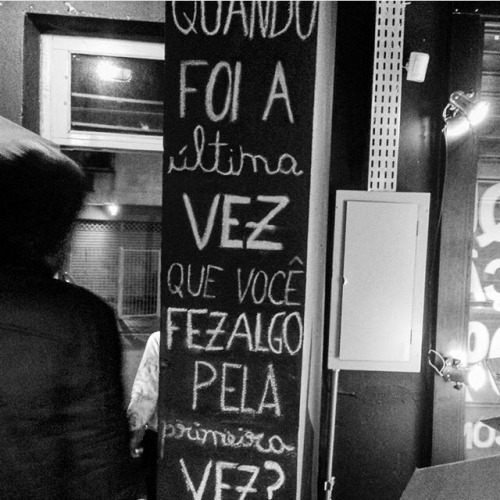 QUANDO
FOI A
última
VEZ
QUE VOCÊ
FEZ ALGO
PELA
primeira
VEZ?